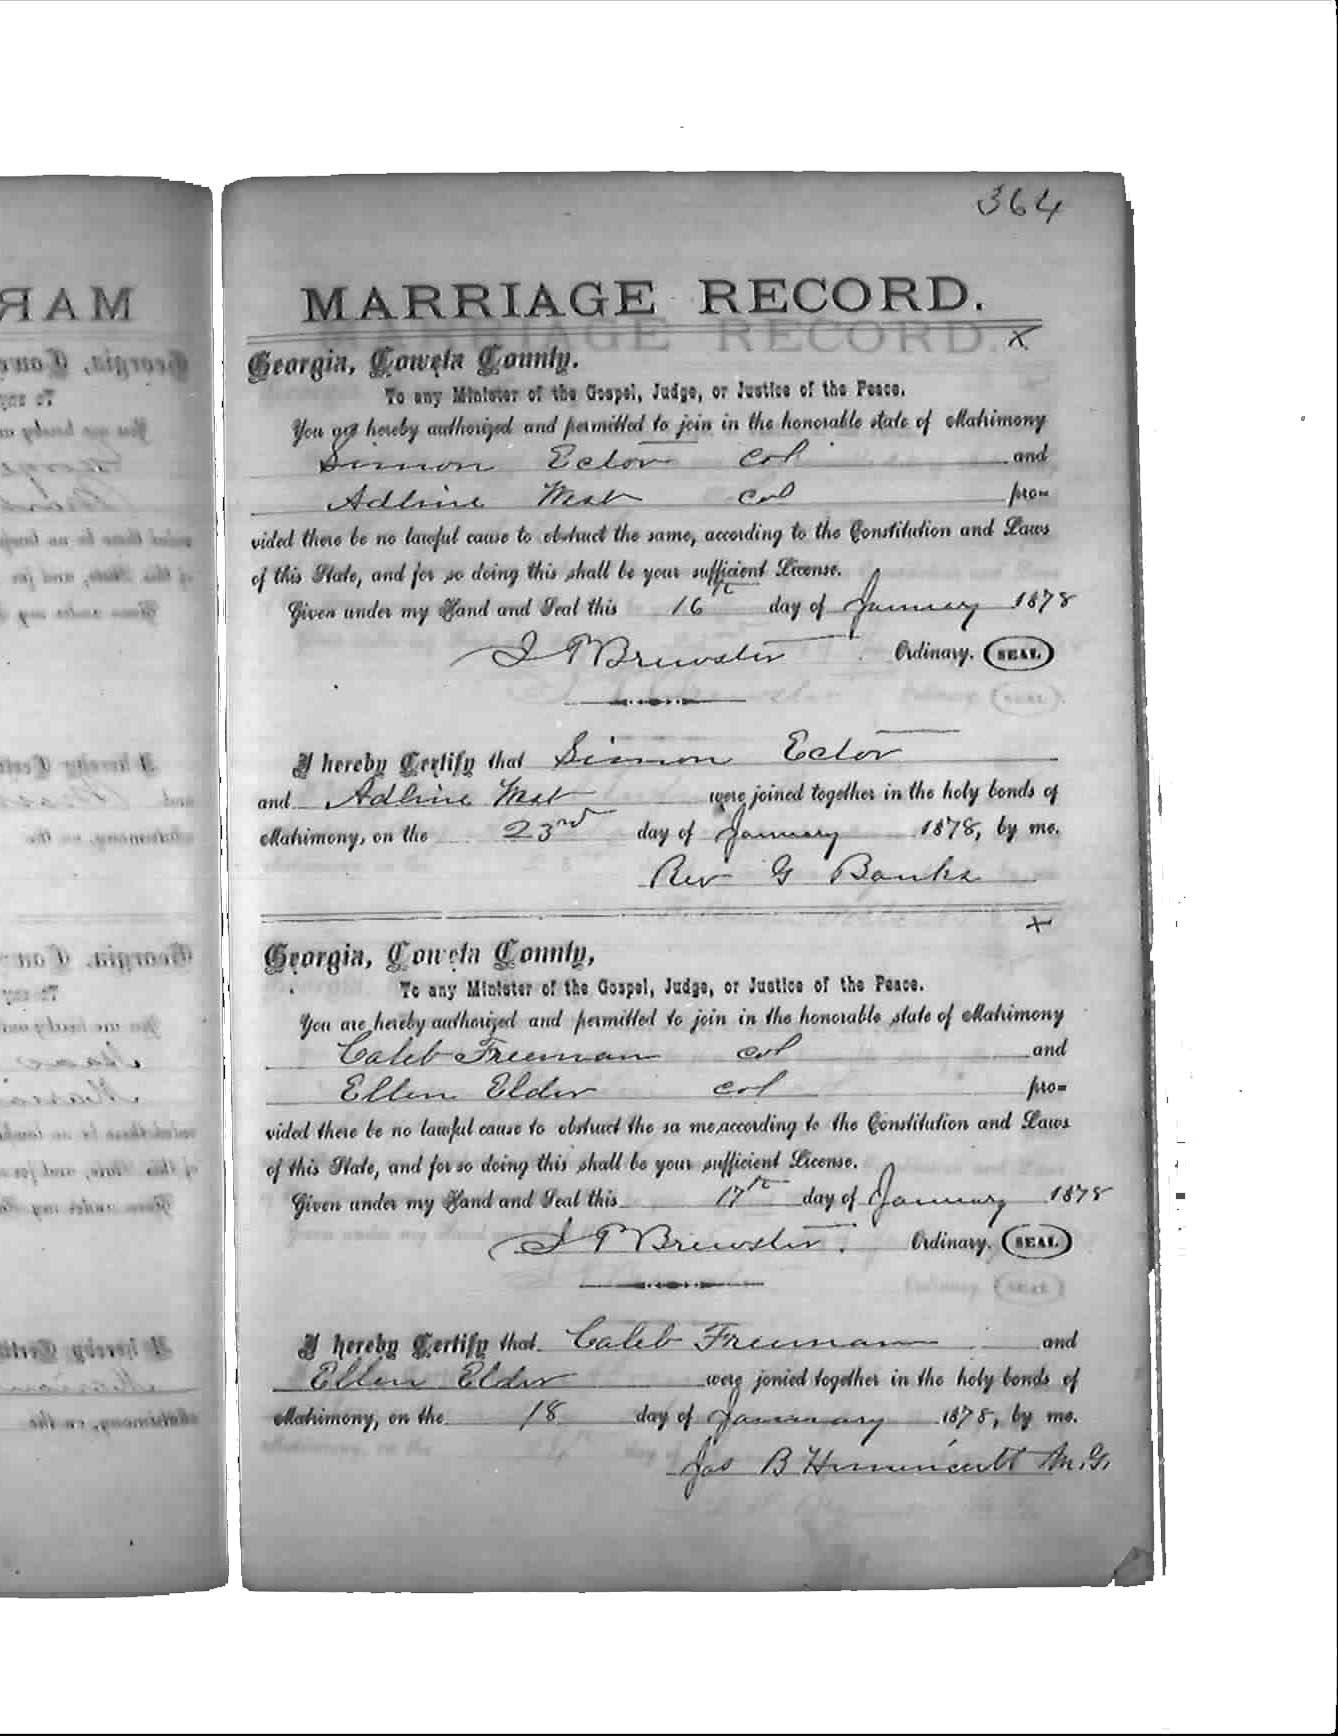 364
MARRIAGE RECORD.
Georgia, Coweta County.
To any Minister of the Gospel, Judge, or Justice of the Peace.
You are hereby authorized and permitted to join in the honorable state of Matrimony
Simon Ector col and
Adline West col pro=
vided there be no lawful cause to obstruct the same, according to the Constitution and Laws
of this State, and for so doing this shall be your sufficient License.
Given under my Hand and Seal this 16th day of January 1878
J P Brewster Ordinary. SEAL
I hereby Certify that Simon Ector
and Adline West were joined together in the holy bonds of
Matrimony, on the 23rd day of January 1878, by me.
Rev G Banks
Georgia, Coweta County,
To any Minister of the Gospel, Judge, or Justice of the Peace.
You are hereby authorized and permitted to join in the honorable state of Matrimony
Caleb Freeman col and
Ellen Elder col pro=
vided there be no lawful cause to obstruct the sa me, according to the Constitution and Laws
of this State, and for so doing this shall be your sufficient License.
Given under my Hand and Seal this 17th day of January 1878
J P Brewster. Ordinary. SEAL
I hereby Certify that Caleb Freeman and
Ellen Elder were jonied together in the holy bonds of
Matrimony, on the 18 day of January 1878, by me.
Jas B M.G.